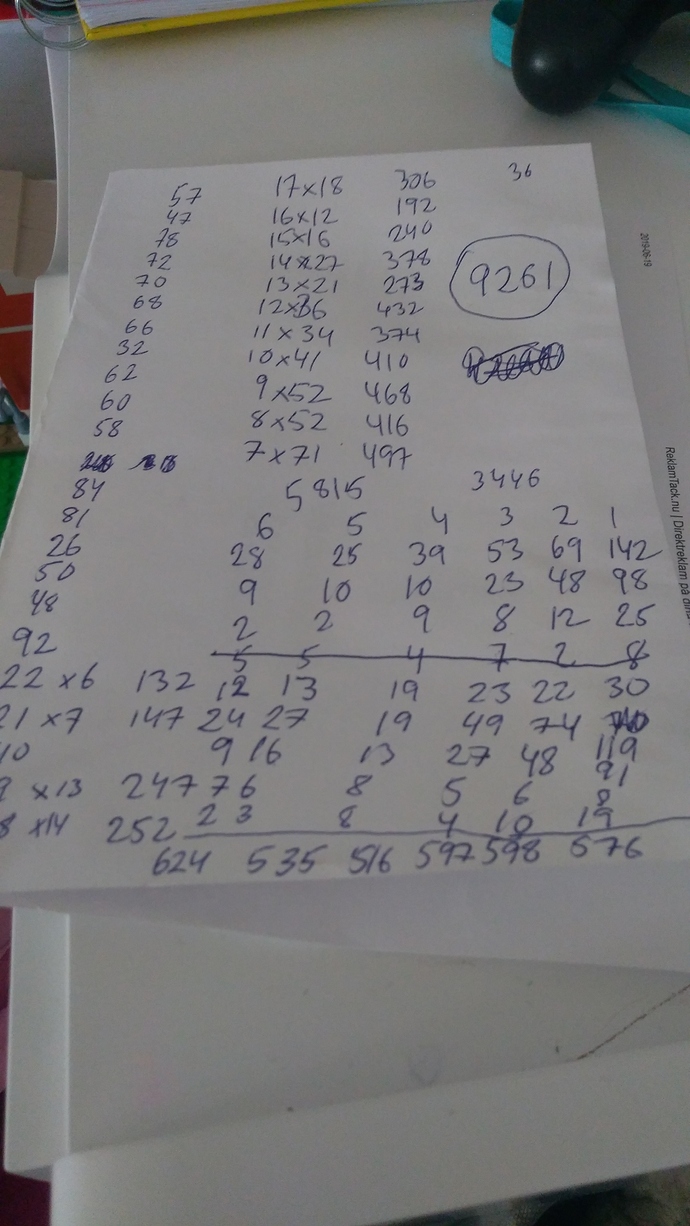 57 17x18 306 36
47 16x12 192
78 15x16 240
72 14x27 378
70 13x21 273 9261
68 12x36 432
66 11x34 374
32 10x41 410
62 9x52 468
60 8x52 416
58 7x71 497
84 5815 3446
81 6 5 4 3 2 1
26 28 25 39 53 69 142
50 9 10 10 23 48 98
48 2 2 9 8 12 25
92 5 5 4 7 2 8
22 x6 132 12 13 19 23 22 30
21 x7 147 24 27 19 49 74
9 16 13 27 48 119
x13 247 76 8 5 6 91
8
8 x14 252 2 3 8 4 10 19
624 535 516 597 598 576
2019-06-19
ReklamTack.nu | Direktreklam på